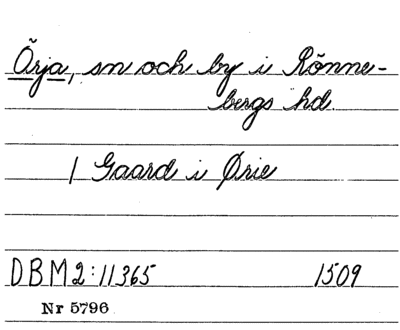 Örja, sn och by i Rönne-
bergs hd.
1 Gaard i Ørie
DBM2:11365 1509
Nr 5796